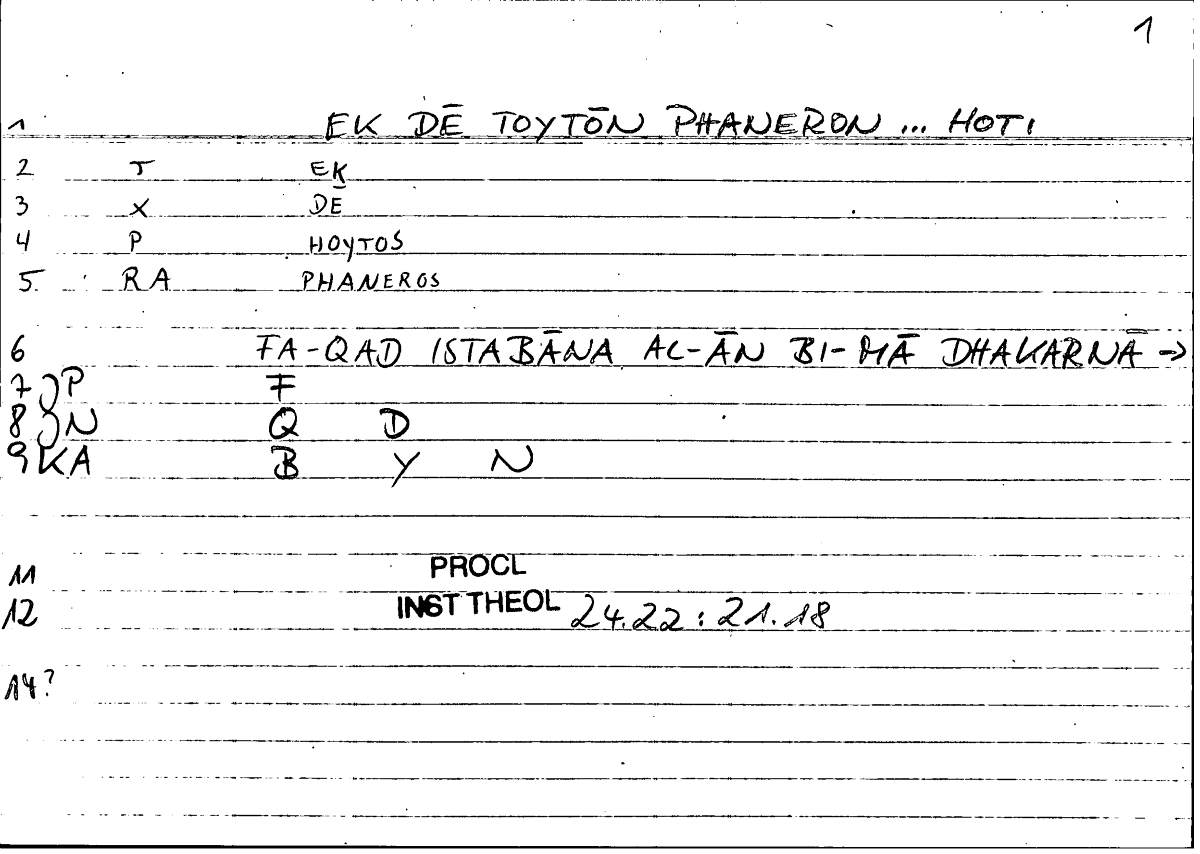 1
1 EK DĒ TOYTŌN PHANERON ... HOTI
2 T EK
3 X DĒ
4 P HOYTOS
5. RA PHANEROS
6 FA-QAD ISTABĀNA AL-ĀN BI-MĀ DHAKARNĀ →
7 P F
8 N Q D
9 KA B Y N
11 PROCL
12 INST THEOL 24.22 : 21.18
14?